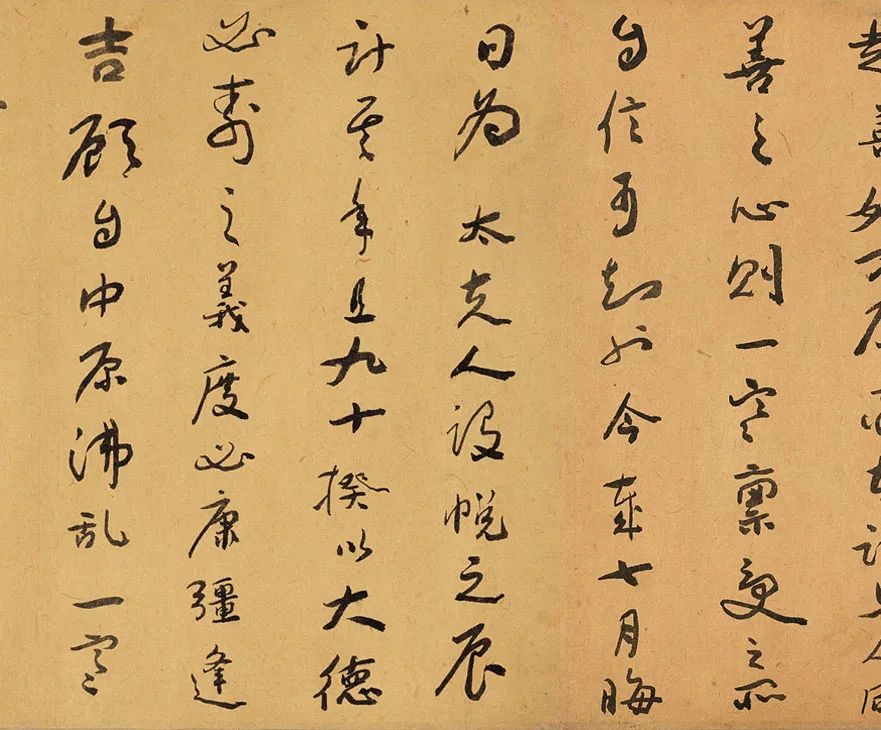 善之心則一家稟受之所
自信可知今歲七月晦
日為太夫人設帨之辰
計其年且九十揆以大德
必壽之義度必康彊逢
吉顧自中原沸乱一家